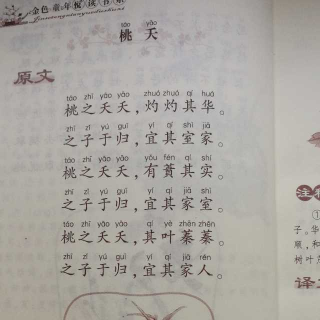 金色童年悦读书系
táo yāo
桃夭
原文
táo zhī yāo yāo zhuó zhuó qí huá
桃之夭夭，灼灼其华。
zhī zǐ yú guī yí qí shì jiā
之子于归，宜其室家。
táo zhī yāo yāo yǒu fén qí shí
桃之夭夭，有蕡其实。
zhī zǐ yú guī yí qí jiā shì
之子于归，宜其家室。
táo zhī yāo yāo qí yè zhēn zhēn
桃之夭夭，其叶蓁蓁。
zhī zǐ yú guī yí qí jiā rén
之子于归，宜其家人。
注
①
子。华
顺，和
树叶
译